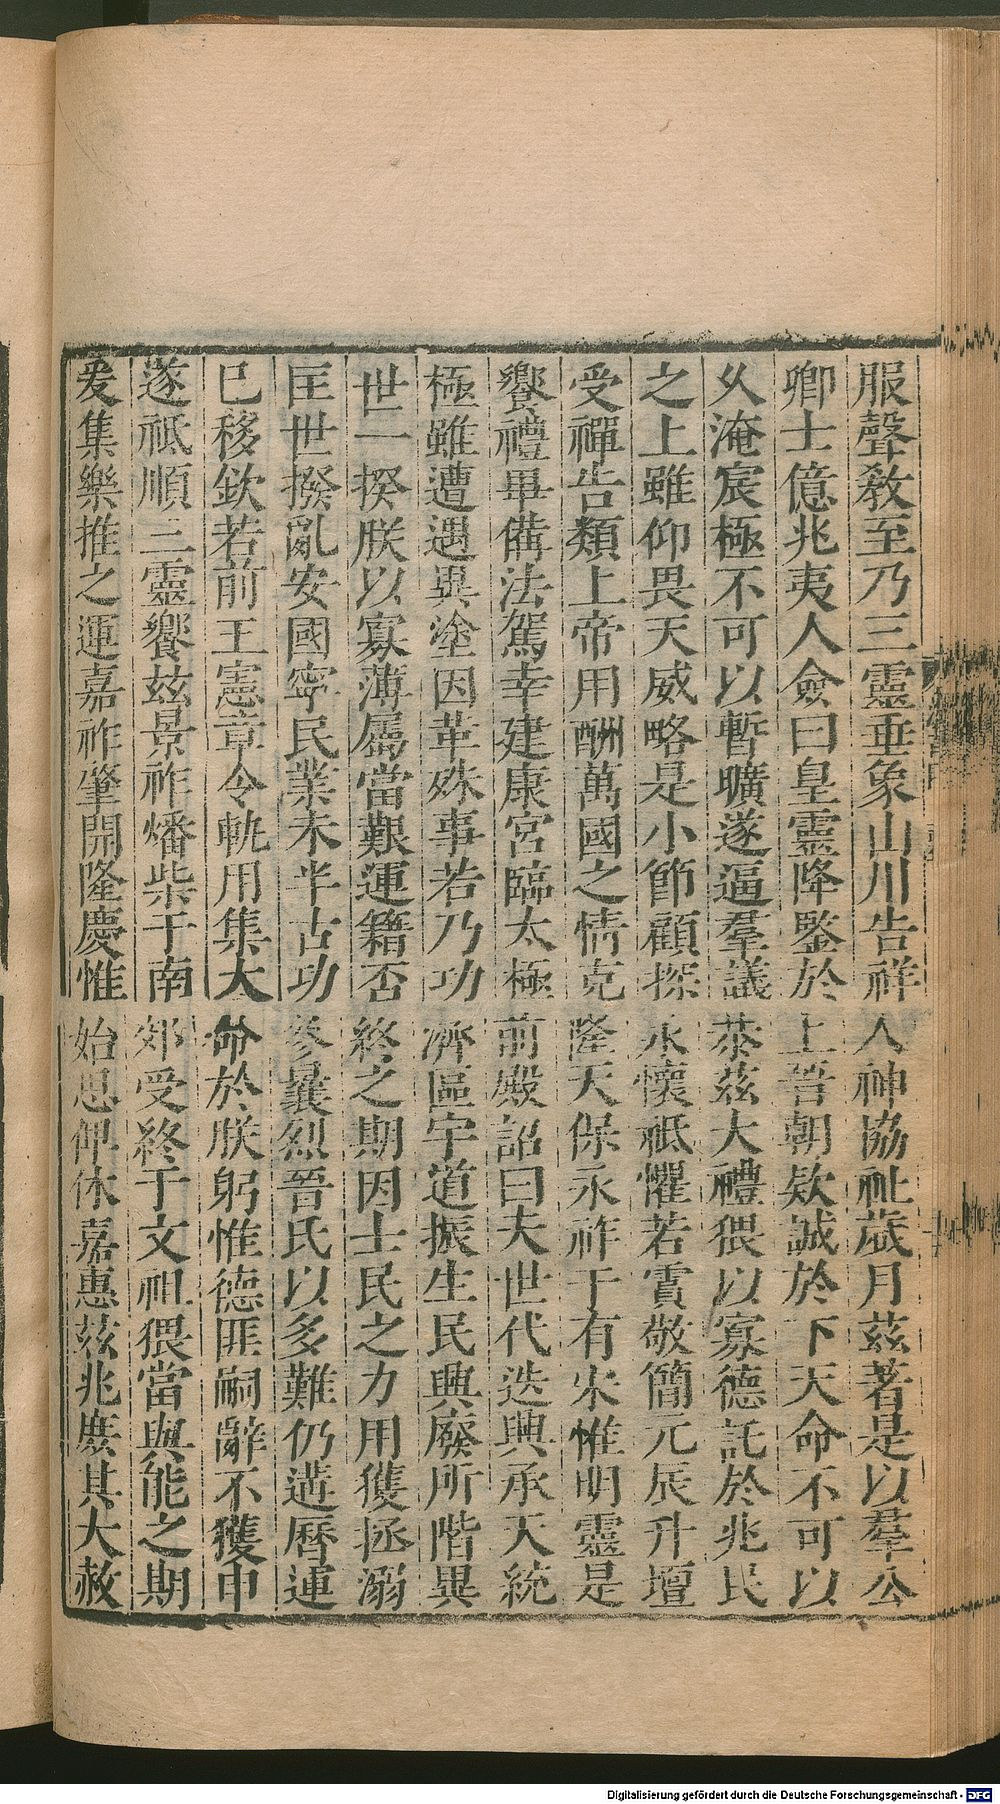 服聲敎至乃三靈垂象山川告祥人神協祉歲月茲著是以羣公
卿士億兆夷人僉曰皇靈降鑒於上晉朝欵誠於下天命不可以
乆淹宸極不可以暫曠遂逼羣議恭茲大禮猥以寡德託於兆民
之上雖仰畏天威略是小節顧探永懷祗懼若霣敬簡元辰升壇
受禪告類上帝用酬萬國之情克隆天保永祚于有宋惟明靈是
饗禮畢備法駕幸建康宮臨太極前殿詔曰夫世代迭興承天統
極雖遭遇異塗因革殊事若乃功濟區宇道振生民興廢所階異
世一揆朕以寡薄屬當艱運籍否終之期因士民之力用獲拯溺
匡世撥亂安國寧民業未半古功參曩烈晉氏以多難仍遘曆運
已移欽若前王憲章令軌用集大命於朕躬惟德匪嗣辭不獲申
遂祗順三靈饗茲景祚燔柴于南郊受終于文祖猥當與能之期
爰集樂推之運嘉祚肇開隆慶惟始思俾休嘉惠茲兆庶其大赦
Digitalisierung gefördert durch die Deutsche Forschungsgemeinschaft - DFG